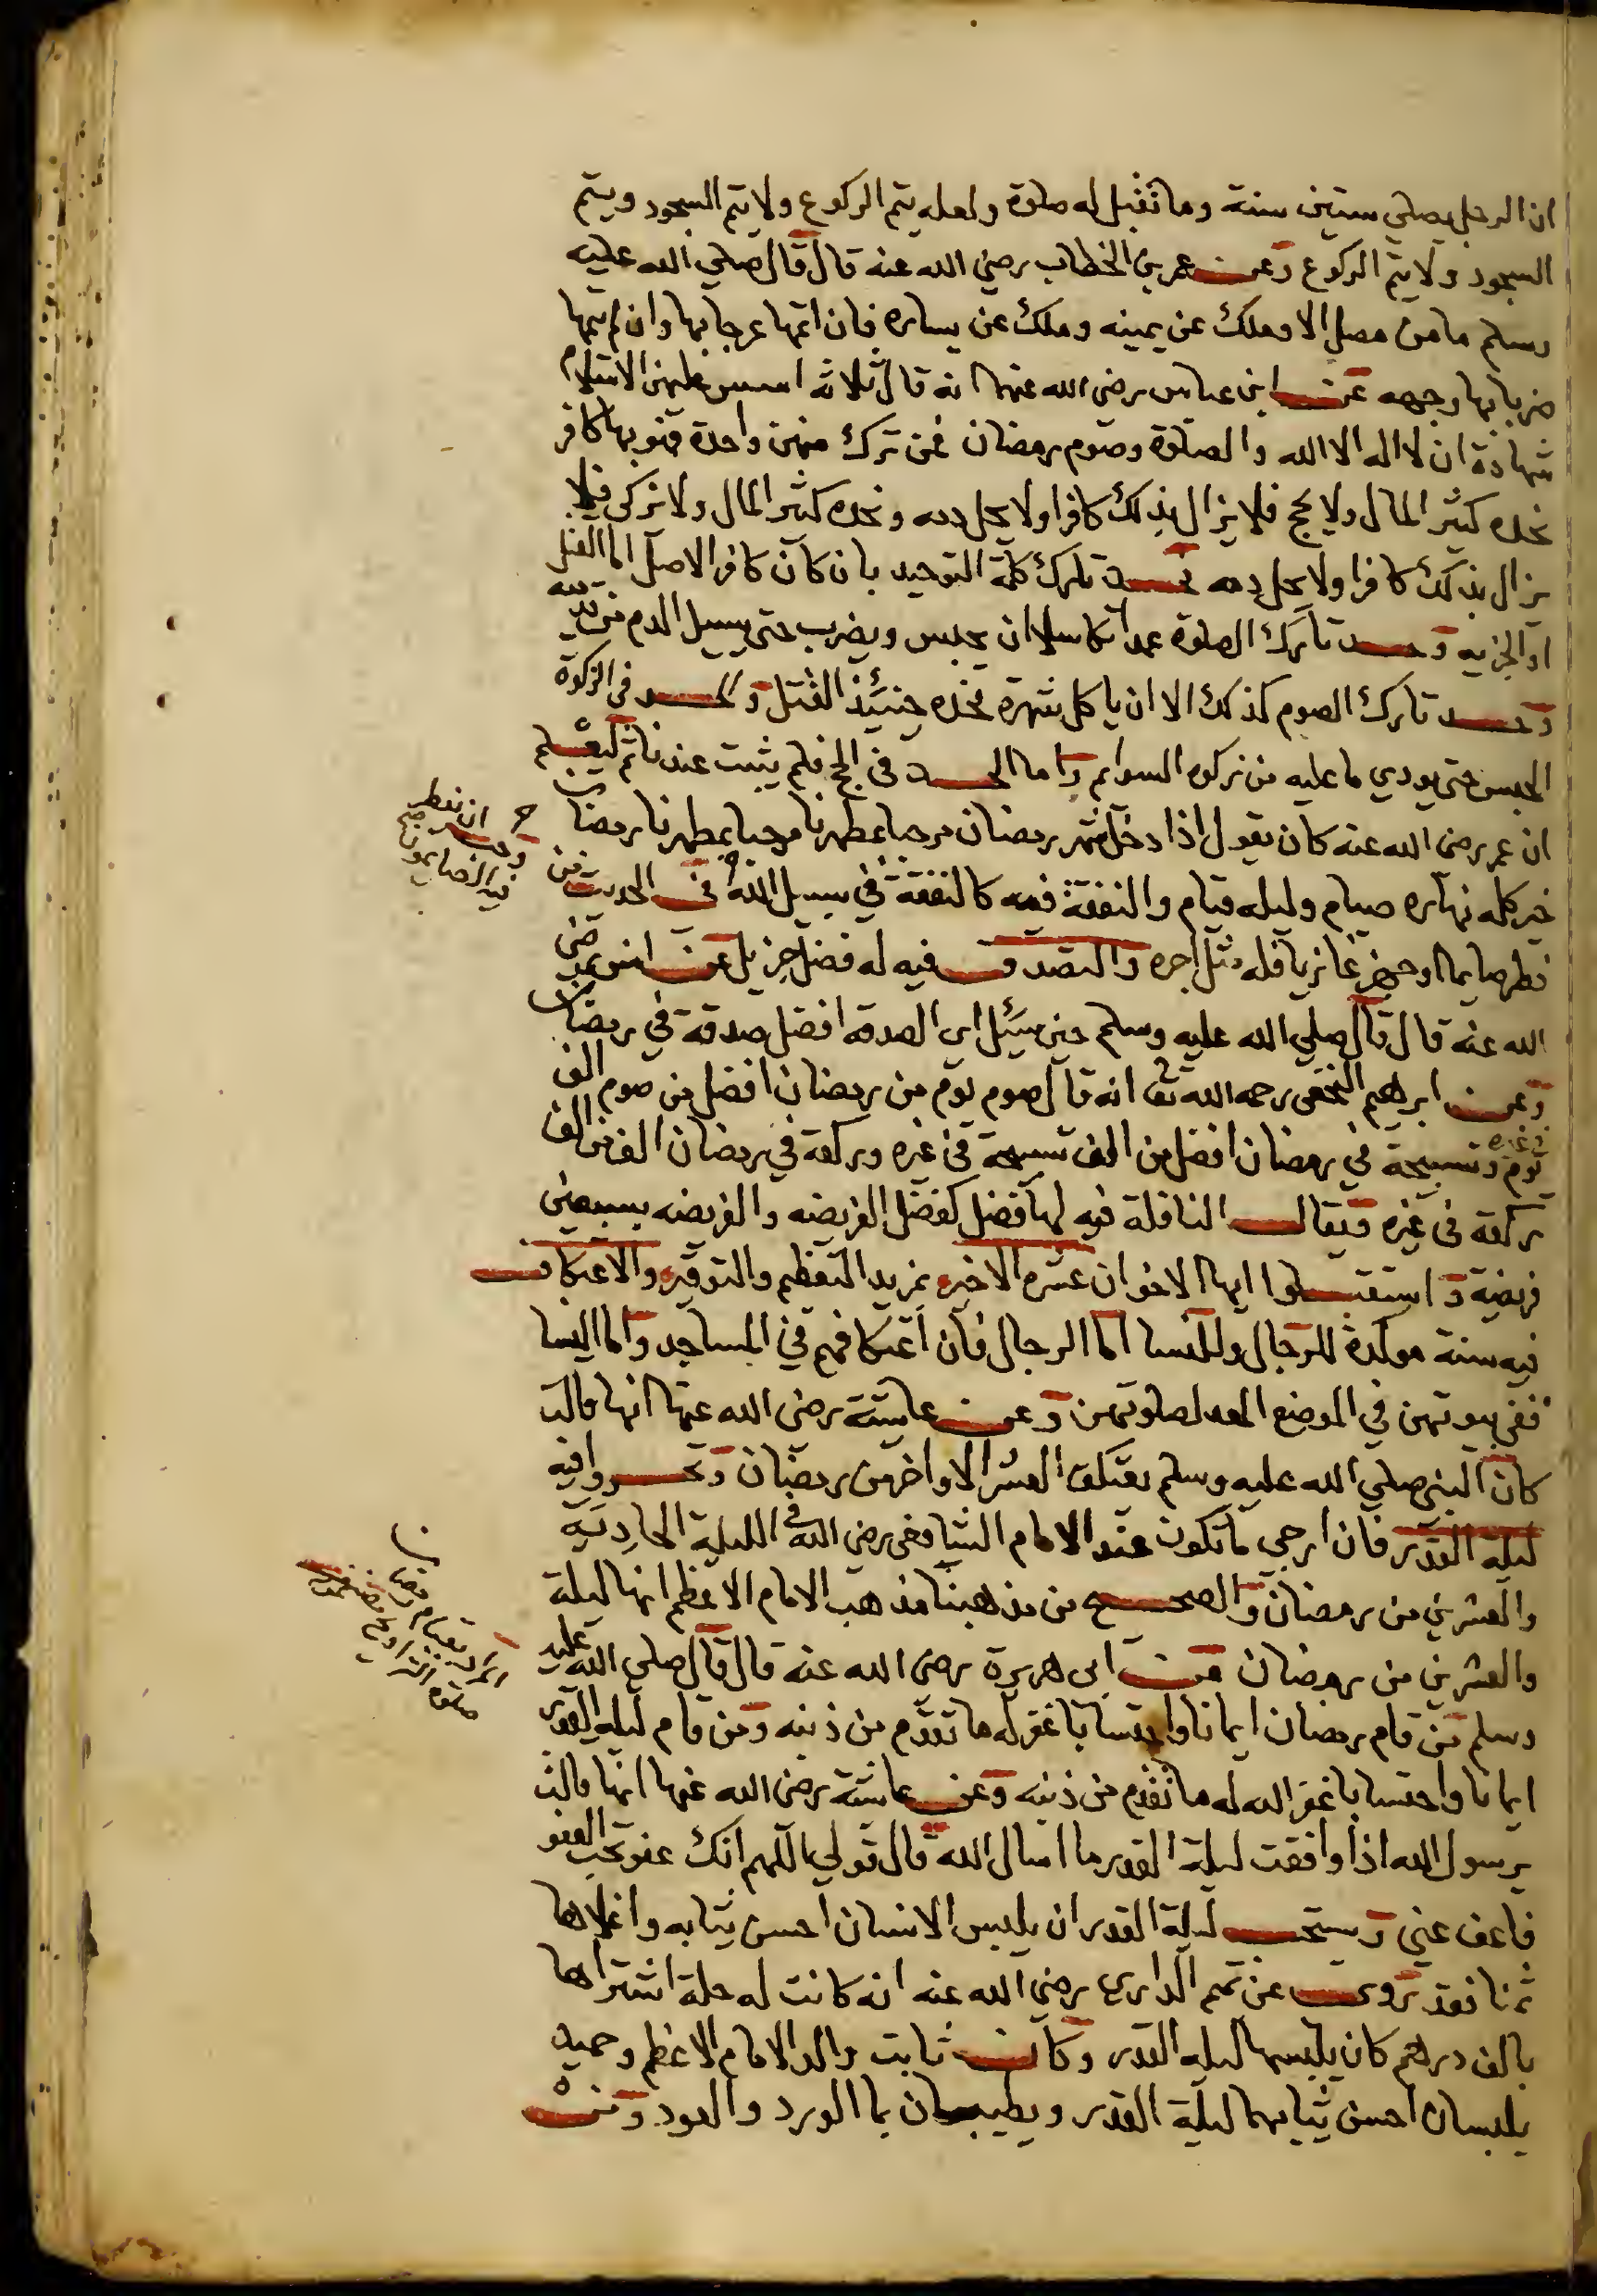 ان الرجل يصلي ستين سنة وما تقبل له صلوة ولعله يتم الركوع ولا يتم السجود ويتم
السجود ولا يتم الركوع وعن عمر بن الخطاب رضي الله عنه قال قال صلي الله عليه
وسلم ما من مصل الا وملك عن يمينه وملك عن يساره فان اتمها عرجا بها وان لم يتمها
ضربا بها وجهه عن ابن عباس رضى الله عنهما انه قال ثلاثة اسس عليهن الاسلام
شهادة ان لا اله الا الله والصلوة وصوم رمضان فمن ترك منهن واحدة فهو بها كافر
نجده كثير المال ولا يحج فلا يزال بذلك كافرا ولا يحل دمه ونجده كثير المال ولا يزكى فلا
يزال بذلك كافرا ولا يحل دمه فحد تارك كلمة التوحيد بان كان كافر الاصل اما القتل
او الجزيه وحد تارك الصلوة عمدا تكاسلا ان يحبس ويضرب حتى يسيل الدم من
وحد تارك الصوم كذلك الا ان ياكل شهرة فحده حينئذ القتل والحد فى الزكوة
الحبس حتى يودي ما عليه من زكوة السوايم واما الحد فى الحج فلم يثبت عندنا ثم ليعلم
ان عمر رضى الله عنه كان يقول اذا دخل شهر رمضان مرحبا بمطهرنا مرحبا بمطهرنا رمضان
خير كله نهاره صيام وليله قيام والنفقة فيه كالنفقة في سبيل الله وفى الحديث من
فطر صايما او جهز غازيا فله مثل اجره والتصدق فيه له فضل جزيل عن انس رضى
الله عنه قال قال صلي الله عليه وسلم حين سئل اى الصدقة افضل صدقة في رمضان
وعن ابرهيم النخعى رحمه الله تعا انه قال صوم يوم من رمضان افضل من صوم الف
يوم فى غيره وتسبيحة في رمضان افضل من الف تسبيحة فى غيره وركعة في رمضان افضل من الف
ركعة فى غيره ويقال النافلة فيه لها فضل كفضل الفريضه والفريضه بسبعين
فريضة واستقبلوا ايها الاخوان عشره الاخير بمزيد التعظيم والتوقير والاعتكاف
فيه سنة موكدة للرجال وللنسا اما الرجال فان اعتكافهم في المساجد واما النسا
ففى بيوتهن في الموضع المعد لصلوتهن وعن عايشة رضى الله عنها انها قالت
كان النبى صلي الله عليه وسلم يعتكف العشر الاواخر من رمضان وتحروا فيه
ليلة القدر فان ارجى ما تكون عند الامام الشافعى رضى الله فى الليلة الحادية
والعشرين من رمضان والصحيح من مذهبنا مذهب الامام الاعظم انها ليلة
والعشرين من رمضان عن ابى هريرة رضى الله عنه قال قال صلي الله عليه
وسلم من قام رمضان ايمانا واحتسابا غفر له ما تقدم من ذنبه ومن قام ليلة القدر
ايمانا واحتسابا غفر الله له ما تقدم من ذنبه وعن عايشة رضى الله عنها انها قالت
يرسول الله اذا وافقت ليلة القدر ما اسال الله قال قولي اللهم انك عفو تحب العفو
فاعف عني ويستحب ليلة القدر ان يلبس الانسان احسن ثيابه واغلاها
ثمنا فقد روى عن تميم الدارى رضي الله عنه انه كانت له حلة اشتراها
بالف درهم كان يلبسها ليلة القدر وكان ثابت والد الامام الاعظم وحميد
يلبسان احسن ثيابهما ليلة القدر ويطيبان بما الورد والعود ومن